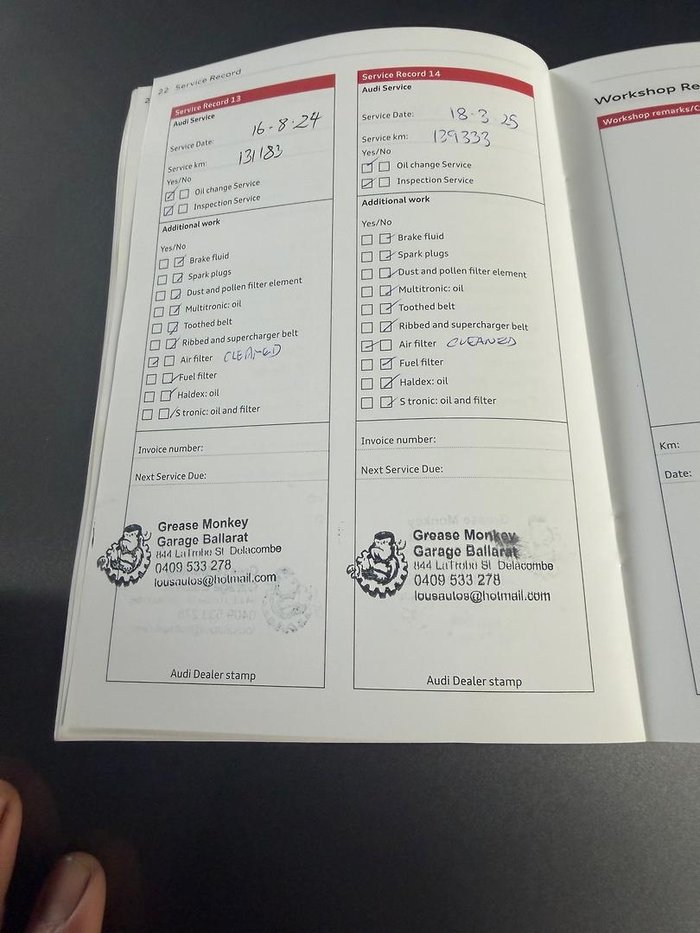 22 Service Record
Service Record 13
Audi Service
Service Date: 16-8-24
Service km: 131183
Yes/No
Oil change Service
Inspection Service
Additional work
Yes/No
Brake fluid
Spark plugs
Dust and pollen filter element
Multitronic: oil
Toothed belt
Ribbed and supercharger belt
Air filter CLEANED
Fuel filter
Haldex: oil
S tronic: oil and filter
Invoice number:
Next Service Due:
Grease Monkey
Garage Ballarat
844 LaTrobe St Delacombe
0409 533 278
lousautos@hotmail.com
Audi Dealer stamp
Service Record 14
Audi Service
Service Date: 18-3-25
Service km: 139333
Yes/No
Oil change Service
Inspection Service
Additional work
Yes/No
Brake fluid
Spark plugs
Dust and pollen filter element
Multitronic: oil
Toothed belt
Ribbed and supercharger belt
Air filter CLEANED
Fuel filter
Haldex: oil
S tronic: oil and filter
Invoice number:
Next Service Due:
Grease Monkey
Garage Ballarat
844 LaTrobe St Delacombe
0409 533 278
lousautos@hotmail.com
Audi Dealer stamp
Workshop Re
Workshop remarks/C
Km:
Date: